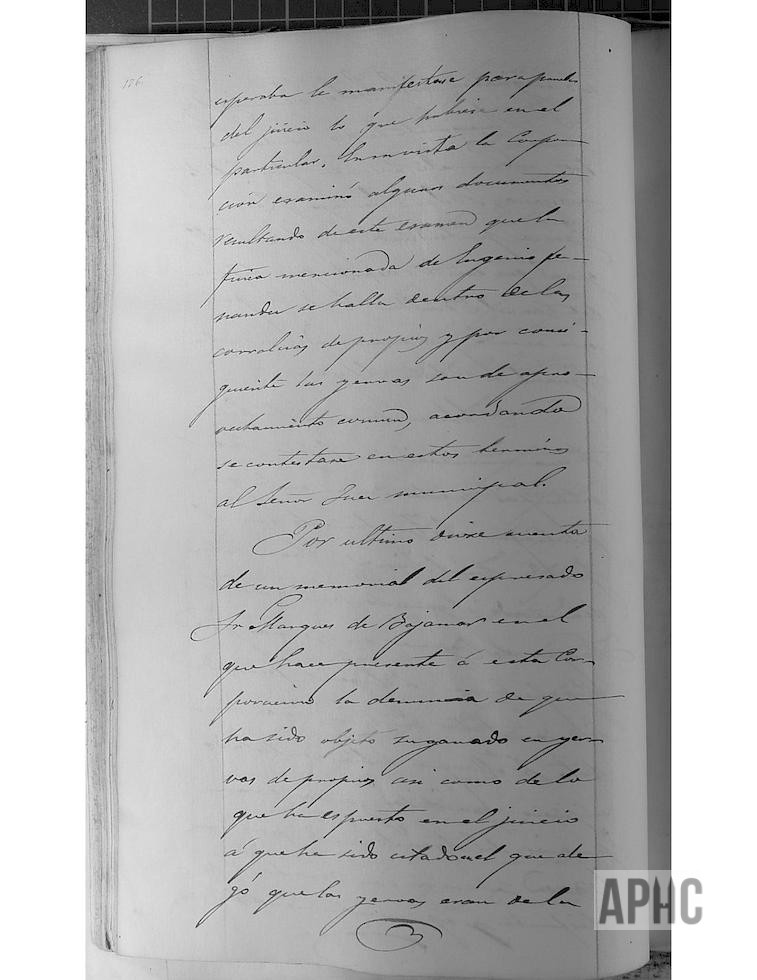 176
esperaba le manifestase para
del juicio lo que hubiese en el
particular. En su vista la Corpora
ción examinó algunos documentos
resultando de este examen que la
finca mencionada de Eugenio Fer-
nandez se halla dentro de las
corralizas de propios y por consi-
guiente las yervas son de apro-
vechamiento comun, acordando
se contestase en estos terminos
al Señor Juez municipal.
Por ultimo diose cuenta
de un memorial del espresado
Sr Marques de Bajamar en el
que hace presente á esta Cor-
poracion la denuncia de que
ha sido objeto su ganado en yer-
vas de propios asi como de lo
que ha espuesto en el juicio
á que ha sido citado en el que ale-
gó que las yervas eran de la
APHC